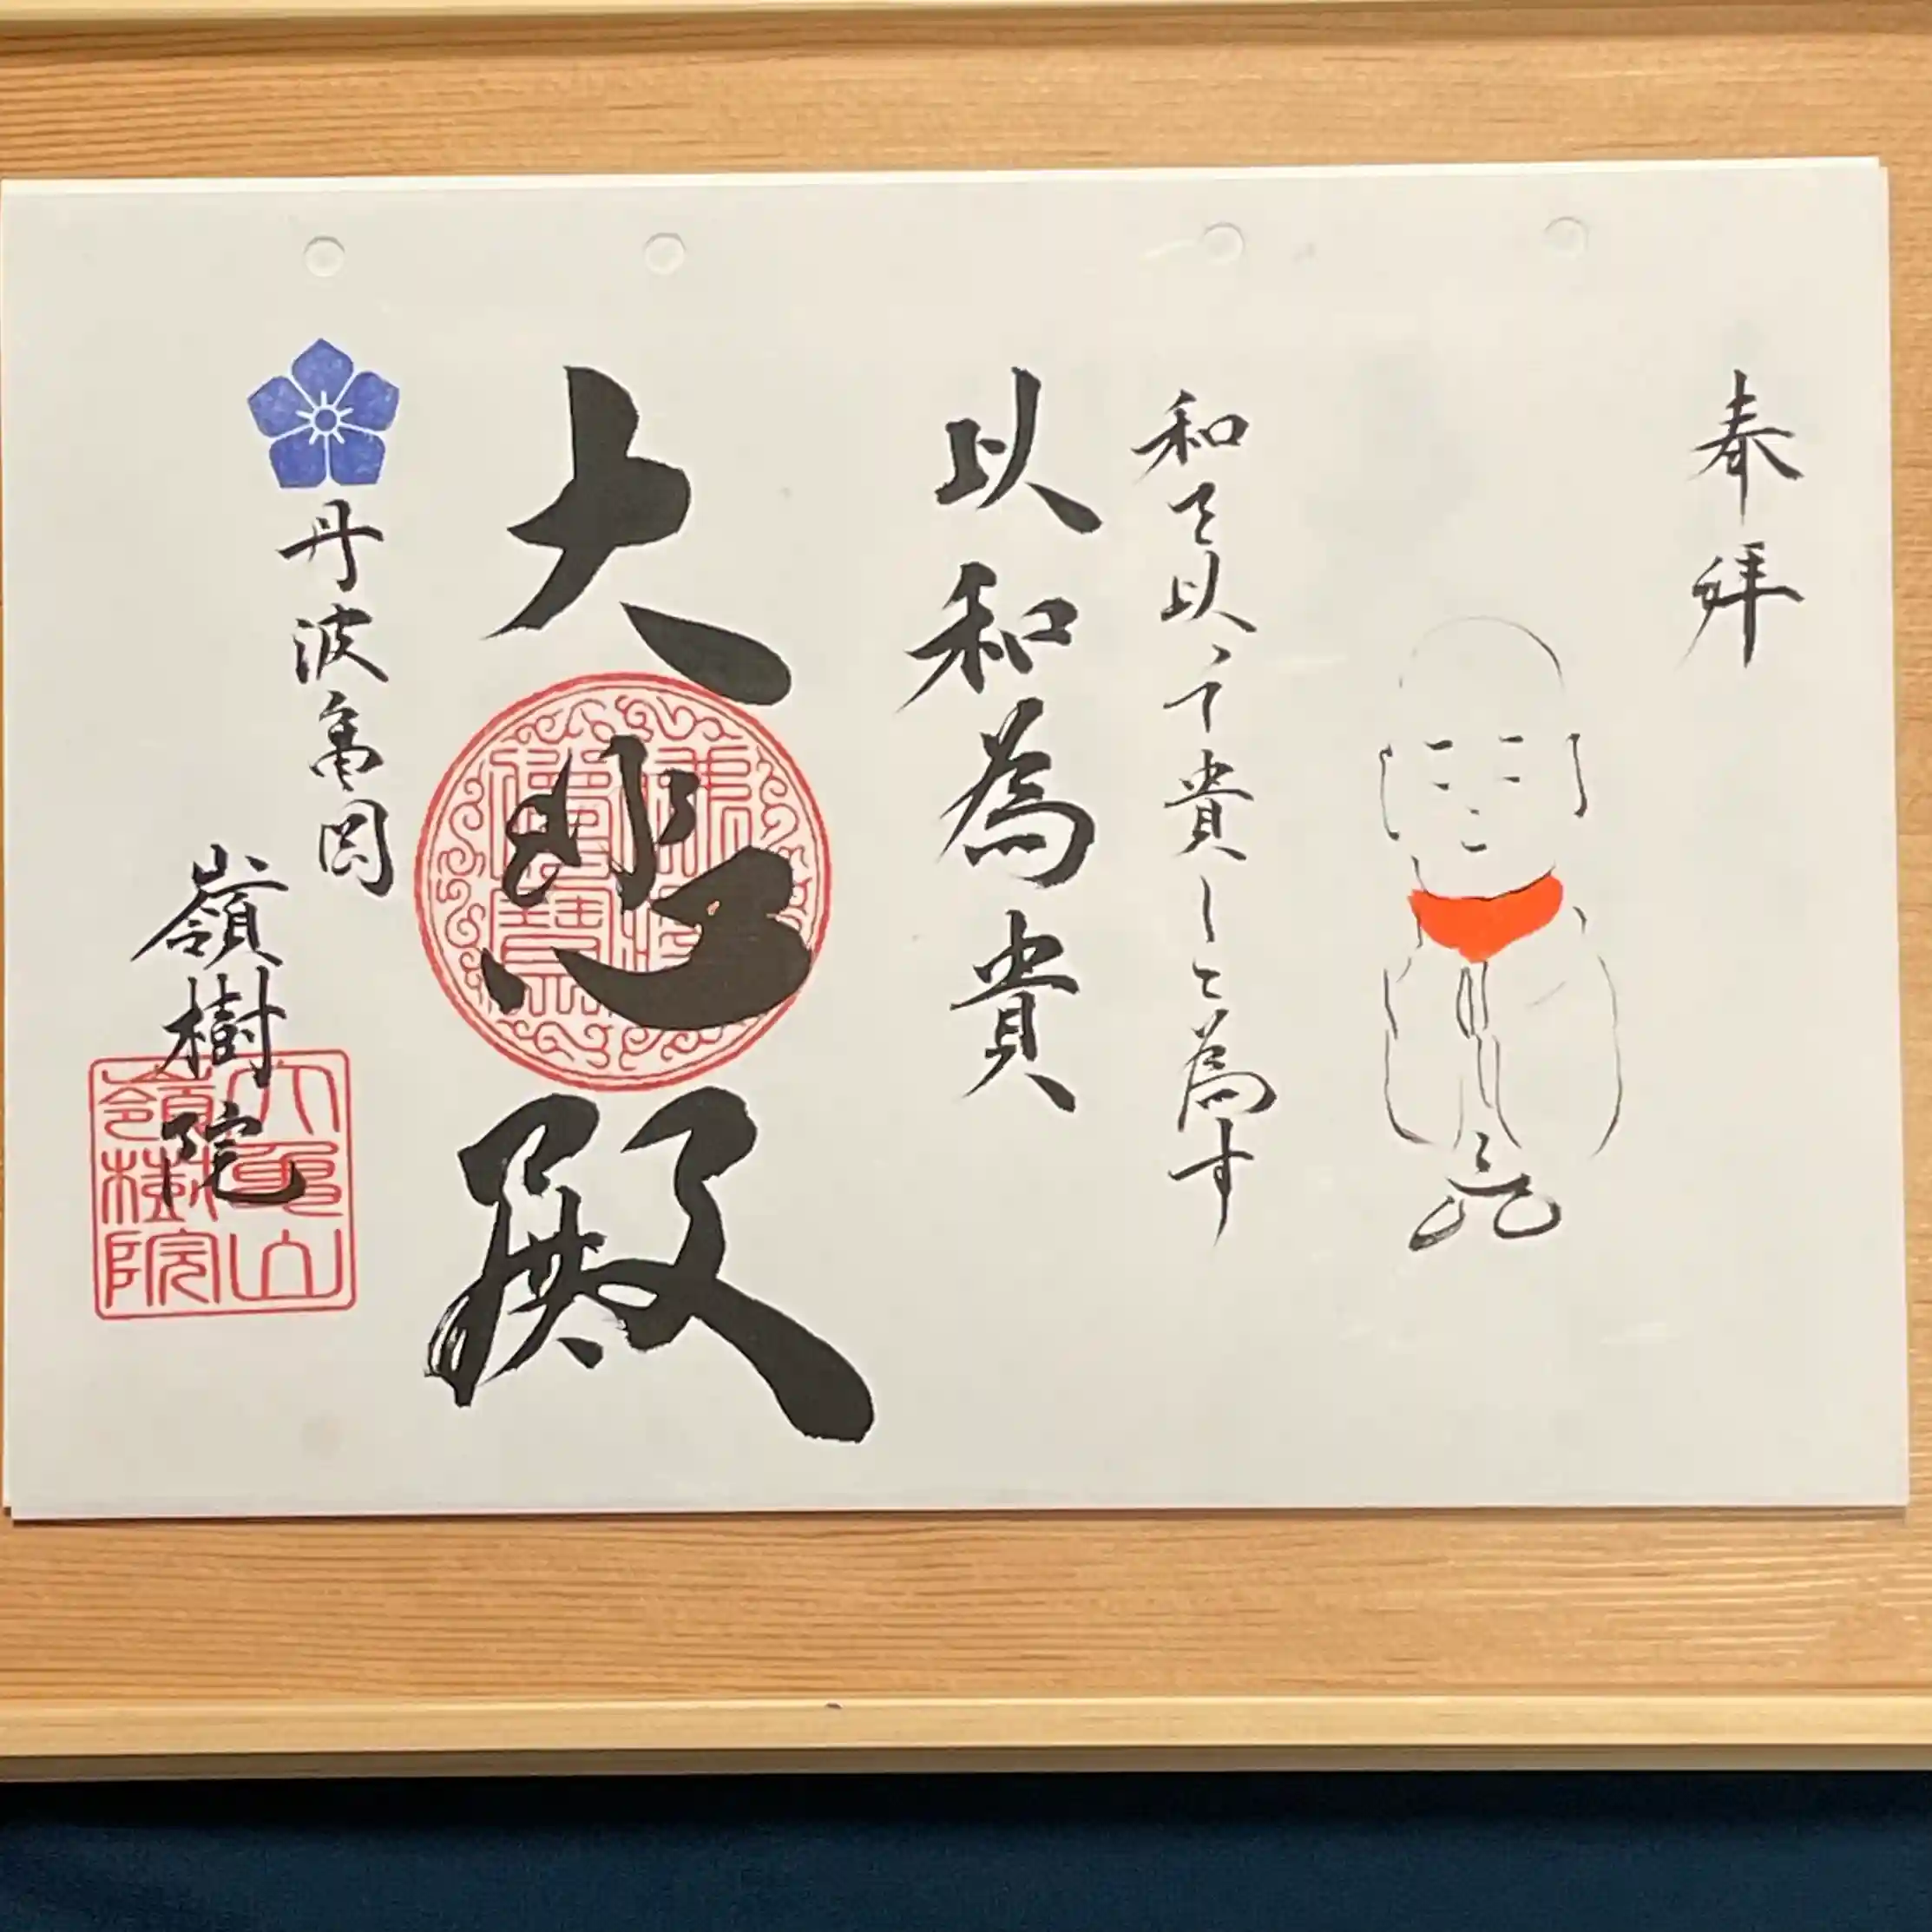 奉拝
和を以って貴しと為す
以和為貴
大悲殿
丹波亀岡
嶺樹院
嶺樹院